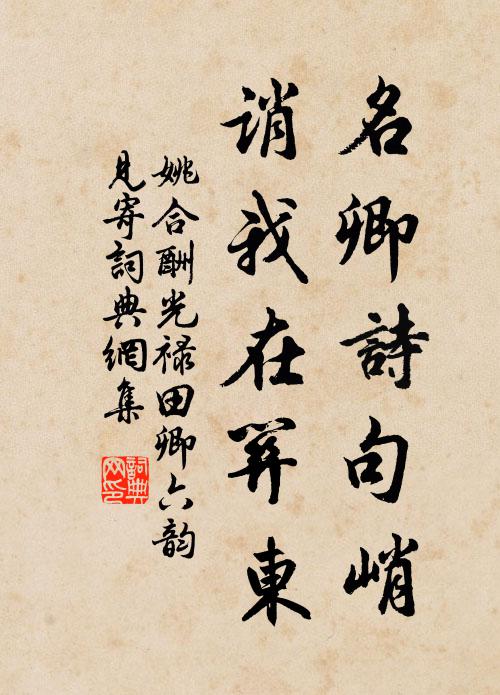 名卿詩句峭
誚我在關東
姚合酬光禄田卿六韵
見寄詞典網集
詞典
网印